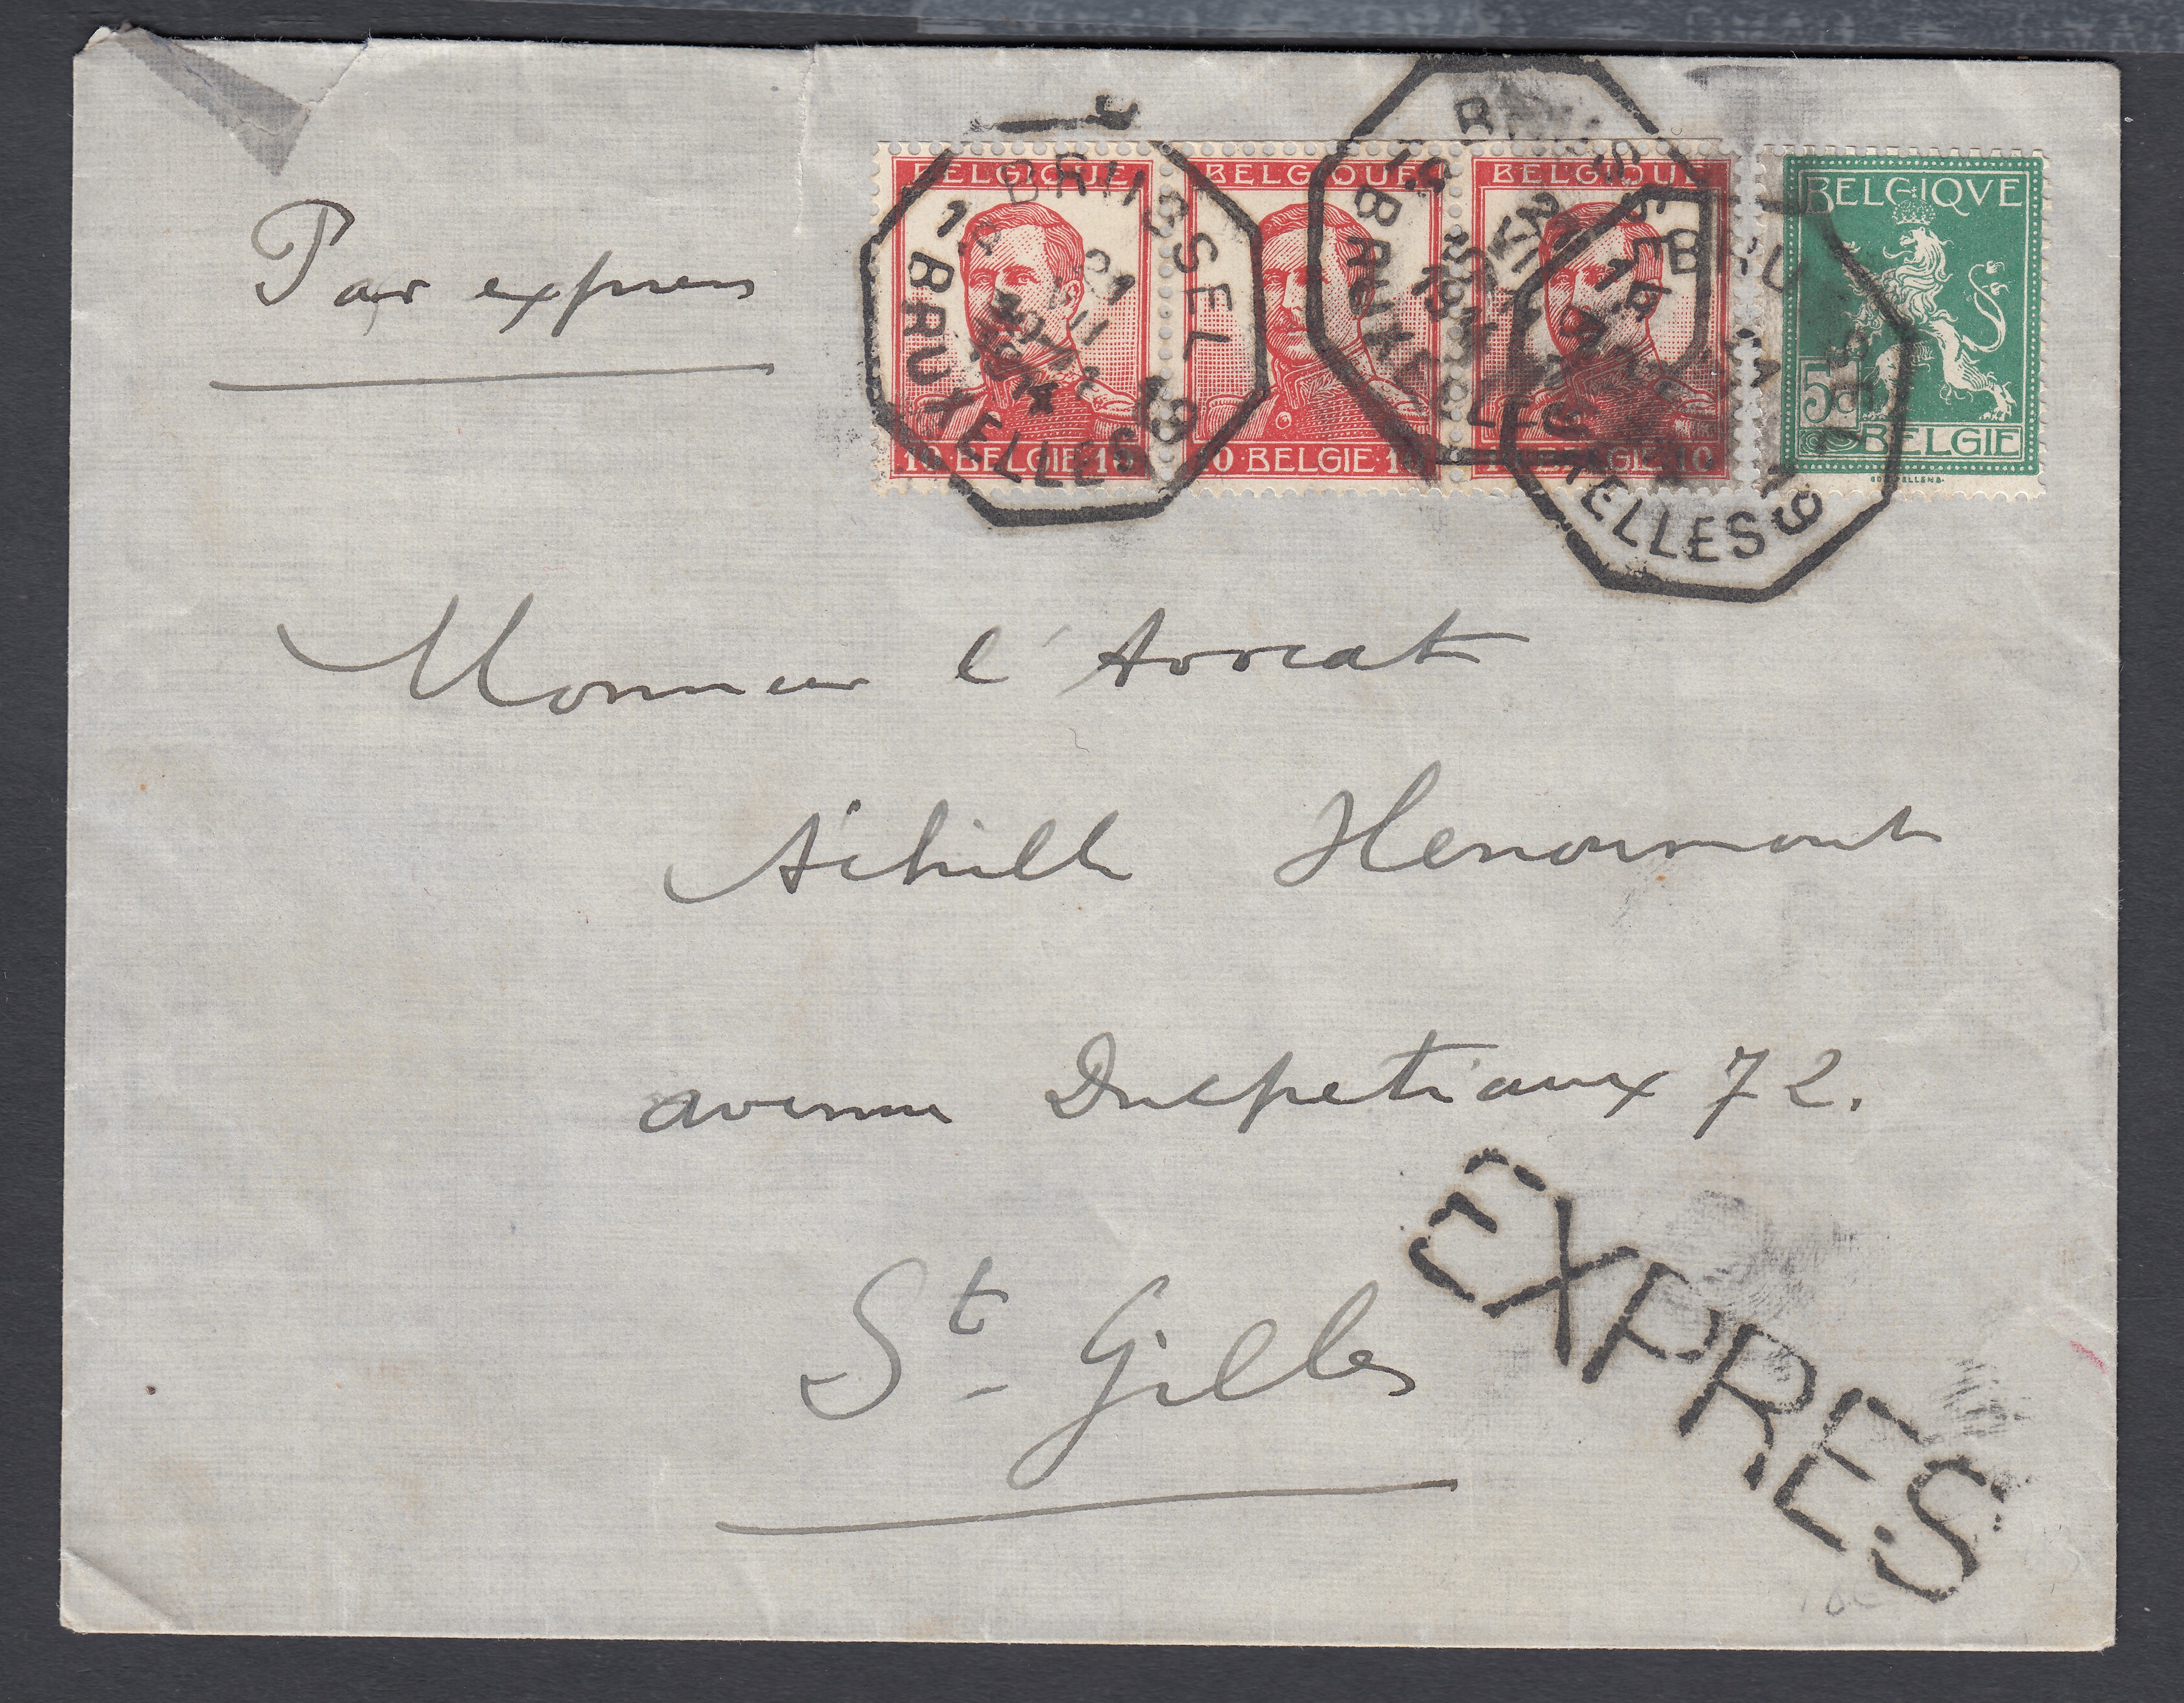 Par express
BELGIQUE
10 BELGIE 10
BELGIQUE
10 BELGIE 10
BELGIQUE
10 BELGIE 10
BELGIQVE
5
BELGIE
BRUSSEL
BRUXELLES
19
Monsieur l'Avocat
Achille Henoumont
avenue Ducpetiaux 72.
St Gilles
EXPRES